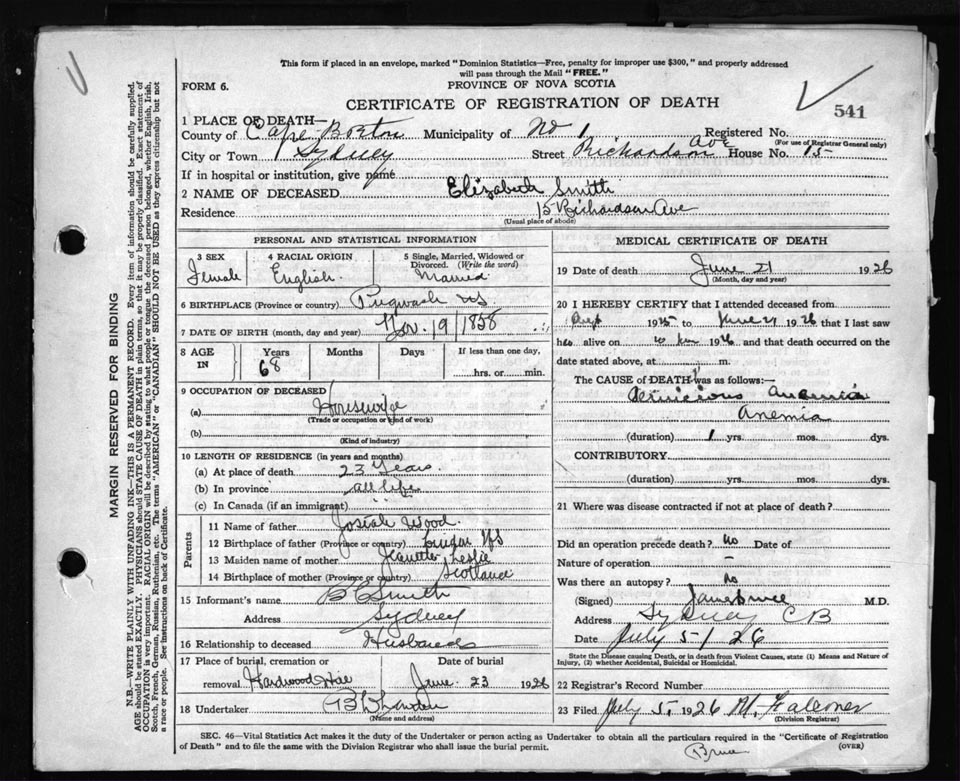 This form if placed in an envelope, marked "Dominion Statistics—Free, penalty for improper use $300," and properly addressed
will pass through the Mail "FREE."
FORM 6.
PROVINCE OF NOVA SCOTIA
CERTIFICATE OF REGISTRATION OF DEATH
541
1 PLACE OF DEATH—
County of Cape Breton Municipality of No 1 Registered No.
(For use of Registrar General only)
City or Town Sydney Street Richardson Ave House No. 15
If in hospital or institution, give name
2 NAME OF DECEASED Elizabeth Smith
Residence 15 Richardson Ave
(Usual place of abode)
PERSONAL AND STATISTICAL INFORMATION
3 SEX
Female
4 RACIAL ORIGIN
English
5 Single, Married, Widowed or
Divorced. (Write the word)
Married
6 BIRTHPLACE (Province or country) Pugwash NS
7 DATE OF BIRTH (month, day and year) Nov. 19/1858
8 AGE
IN
Years
68
Months
Days
If less than one day,
hrs. or min.
9 OCCUPATION OF DECEASED
(a) Housewife
(Trade or occupation or kind of work)
(b)
(Kind of industry)
10 LENGTH OF RESIDENCE (in years and months)
(a) At place of death 23 Years
(b) In province all life
(c) In Canada (if an immigrant)
Parents
11 Name of father Josiah Wood
12 Birthplace of father (Province or country) NS
13 Maiden name of mother Leslie
14 Birthplace of mother (Province or country) Scotland
15 Informant's name B C Smith
Address Sydney
16 Relationship to deceased Husband
17 Place of burial, cremation or
removal Hardwood Hill
Date of burial
June 23 1926
18 Undertaker
(Name and address)
MEDICAL CERTIFICATE OF DEATH
19 Date of death June 21 1926
(Month, day and year)
20 I HEREBY CERTIFY that I attended deceased from
1925 to June 21 1926 that I last saw
her alive on 1926 and that death occurred on the
date stated above, at m.
The CAUSE of DEATH was as follows:—
Pernicious Anemia
Anemia
(duration) 1 yrs. mos. dys.
CONTRIBUTORY.
(duration) yrs. mos. dys.
21 Where was disease contracted if not at place of death?
Did an operation precede death? no Date of
Nature of operation —
Was there an autopsy? no
(Signed) James Bruce M.D.
Address Sydney C B
Date July 5/26
State the Disease causing Death, or in death from Violent Causes, state (1) Means and Nature of
Injury, (2) whether Accidental, Suicidal or Homicidal.
22 Registrar's Record Number
23 Filed July 5, 1926 M. Falconer
(Division Registrar)
SEC. 46—Vital Statistics Act makes it the duty of the Undertaker or person acting as Undertaker to obtain all the particulars required in the "Certificate of Registration
of Death" and to file the same with the Division Registrar who shall issue the burial permit.
(OVER)
Bruce
MARGIN RESERVED FOR BINDING
N.B.—WRITE PLAINLY WITH UNFADING INK—THIS IS A PERMANENT RECORD. Every item of information should be carefully supplied.
AGE should be stated EXACTLY. PHYSICIANS should STATE CAUSE OF DEATH in plain terms, so that it may be properly classified. Exact statement of
OCCUPATION is very important. RACIAL ORIGIN will be described by stating to what people or tongue the deceased person belonged, whether English, Irish,
Scotch, French, German, Russian, Ruthenian, etc. The terms "AMERICAN" or "CANADIAN" SHOULD NOT BE USED as they express citizenship but not
a race or people. See instructions on back of Certificate.